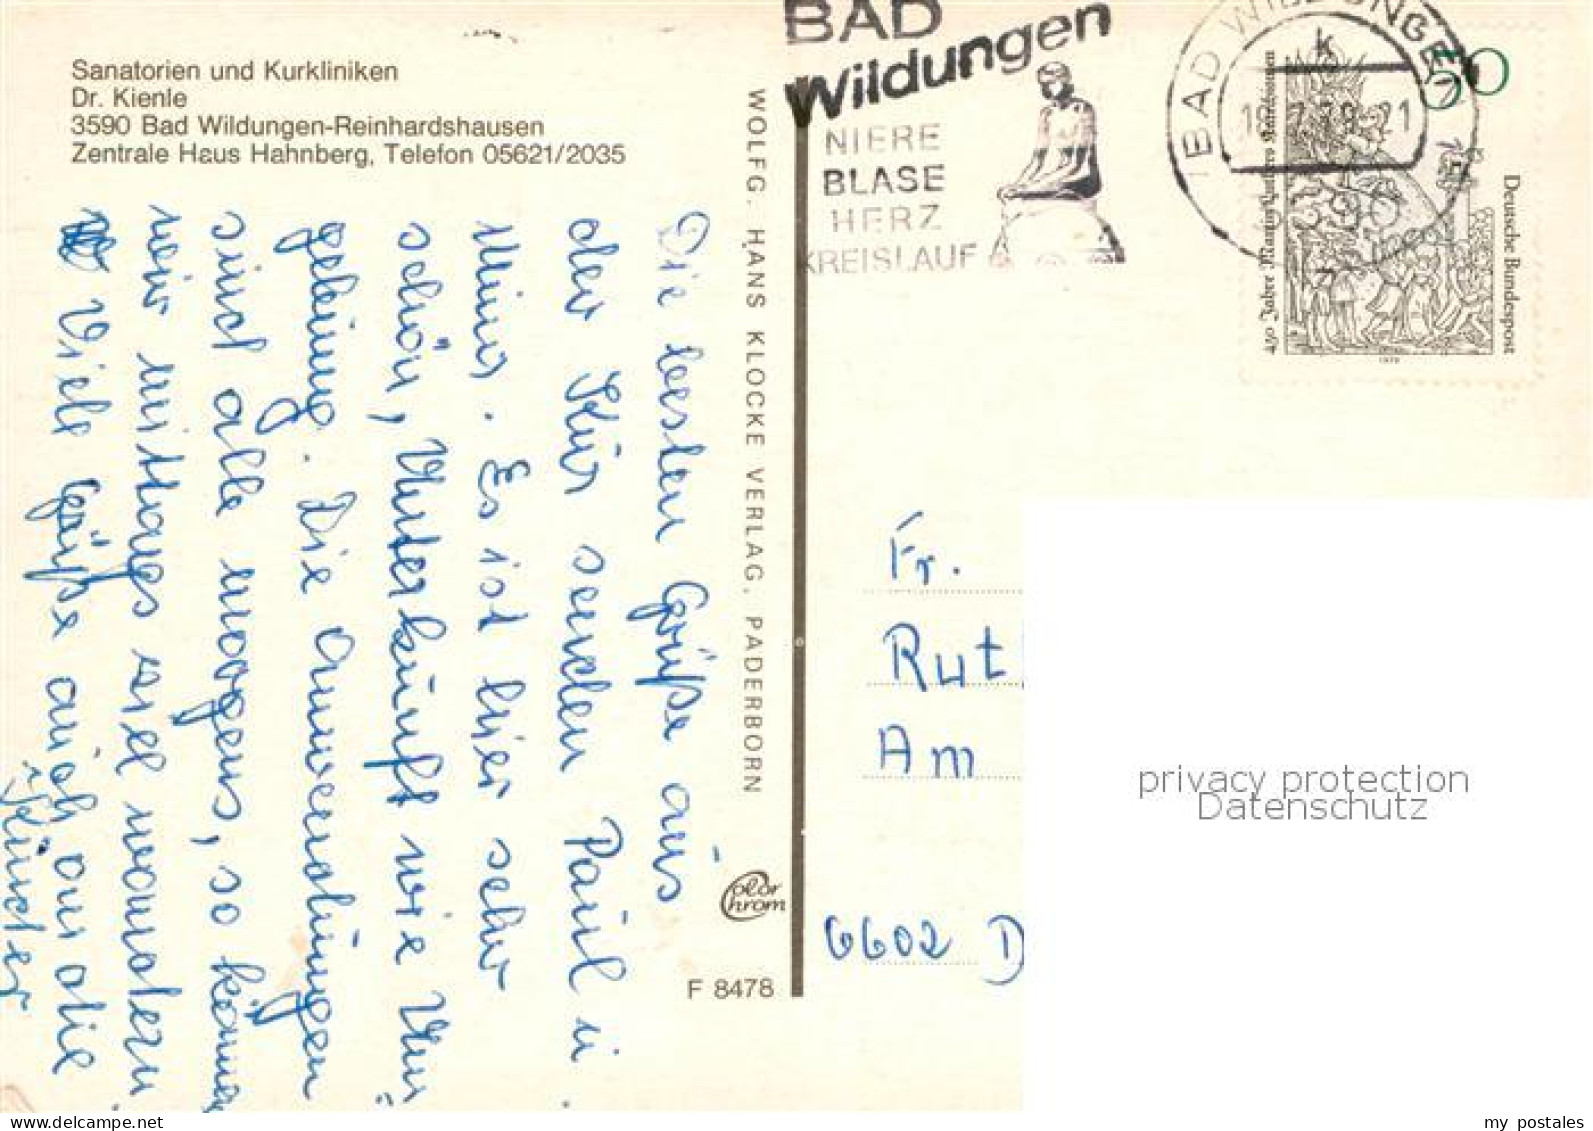 Sanatorien und Kurkliniken
Dr. Kienle
3590 Bad Wildungen-Reinhardshausen
Zentrale Haus Hahnberg, Telefon 05621/2035
Die besten Grüße aus
der Kur senden Paul u
Es ist hier sehr
schön, Unterkunft wie
. Die Anwendungen
sind alle morgens, so können
wir mittags viel wandern
Viele Grüße auch an die
Kinder
WOLFG. HANS KLOCKE VERLAG, PADERBORN
Color
Chrom
F 8478
BAD
Wildungen
NIERE
BLASE
HERZ
KREISLAUF
BAD WILDUNGEN 1
k
21
50
450 Jahre Martin Luthers Katechismen
Deutsche Bundespost
1979
Fr.
Rut
Am
6602 D
privacy protection
Datenschutz
my postales